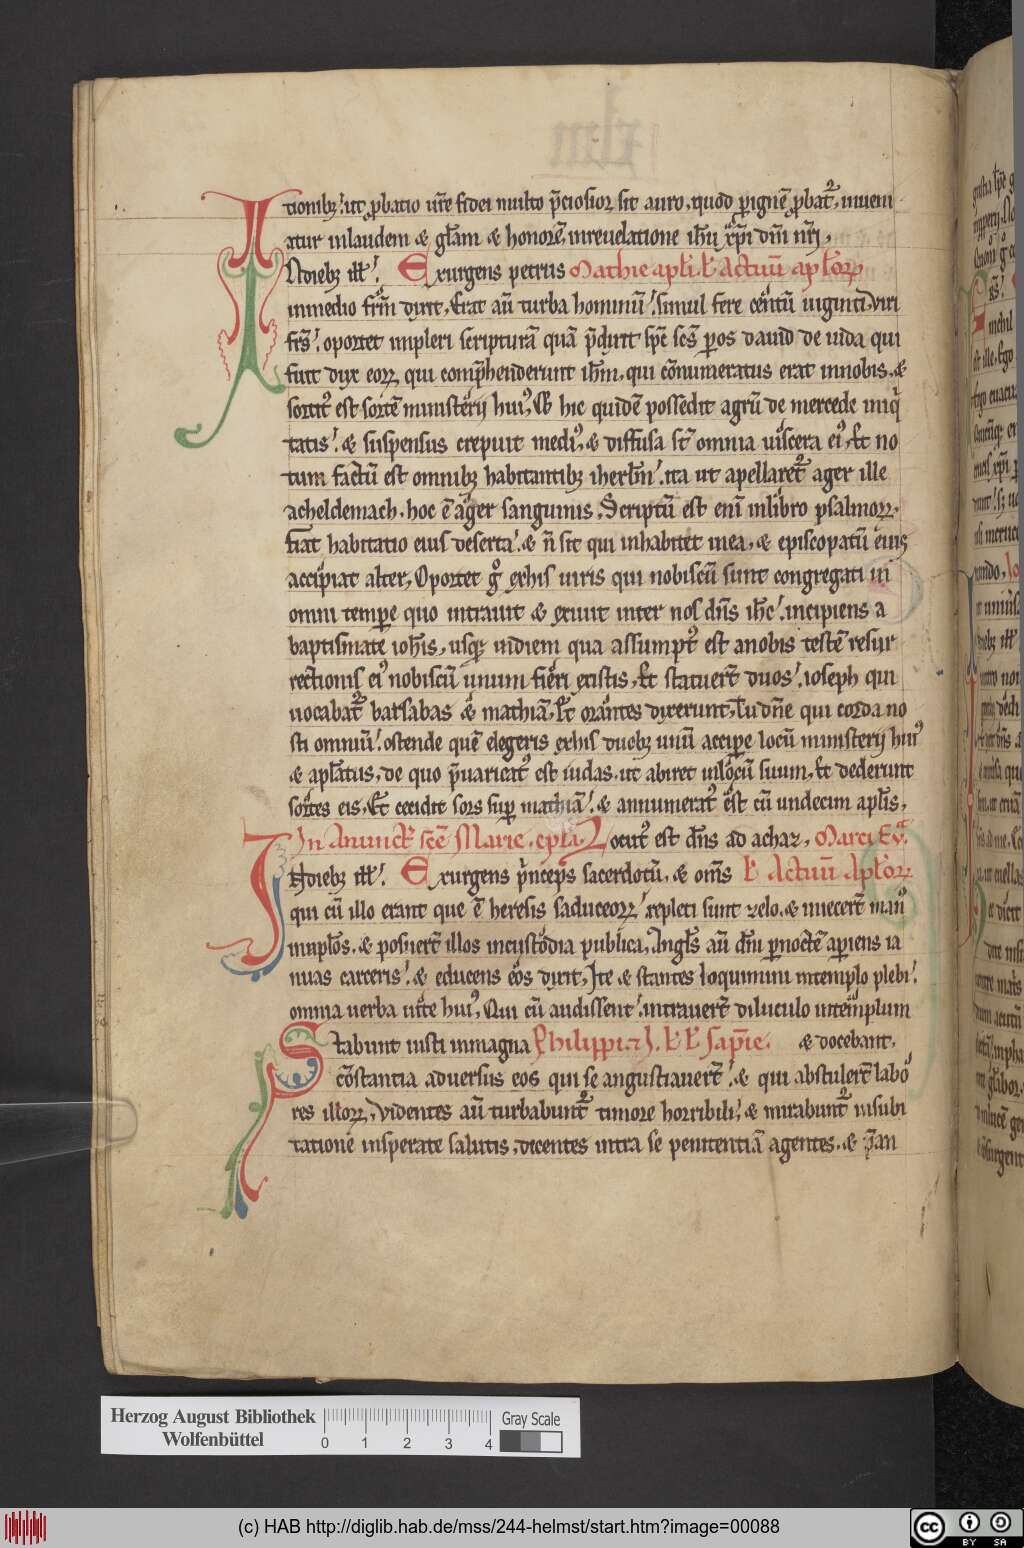 tionibꝫ. ut ꝓbatio ur̃e fidei multo p̃ciosior sit auro, quod ꝑ ignẽ ꝓbatᷣ, inueni
atur in laudem ⁊ gl̃am ⁊ honorẽ, in reuelatione ih̃u xp̃i dñi nr̃i,
N diebꝫ ill̃. Exurgens petrus Mathie apl̃i. l̃. Actuũ apl̃oꝝ
in medio fr̃m dixit, Erat aũ turba hominũ simul fere centũ uiginti, Viri
fr̃s. oportet impleri scripturã quã p̃dixit sp̃c sc̃s ꝑ os dauid de iuda qui
fuit dux eoꝝ qui comp̃henderunt ih̃m, qui cõnumeratus erat in nobis, ⁊
sortitꝰ est sortẽ ministerij huiꝰ, Et hic quidẽ possedit agrũ de mercede iniq̇
tatis. ⁊ suspensus crepuit mediꝰ, ⁊ diffusa st̃ omnia uiscera eiꝰ, Et no
tum factũ est omnibꝫ habitantibꝫ iherl̃m. ita ut apellaretᷣ ager ille
acheldemach, hoc ẽ ager sanguinis, Scriptũ est enĩ in libro psalmoꝝ,
fiat habitatio eius deserta. ⁊ ñ sit qui inhabitet in ea, ⁊ episcopatũ eius
accipiat alter, Oportet g̊ ex his uiris qui nobiscũ sunt congregati in
omni tempe quo intrauit ⁊ exiuit inter nos dñs ih̃c. incipiens a
baptismate ioh̃is, usqꝫ in diem qua assumptꝰ est a nobis testẽ resur
rectionis eiꝰ nobiscũ unum fieri ex istis, Et statuerũt duos. ioseph qui
uocabatᷣ barsabas ⁊ mathiã, Et orantes dixerunt, Tu dñe qui corda no
sti omniũ. ostende quẽ elegeris ex his duobꝫ unũ accipe locũ ministerij huiꝰ
⁊ apl̃atus, de quo p̃uaricatꝰ est iudas, ut abiret in locũ suum, Et dederunt
sortes eis, Et cecidit sors suꝑ mathiã. ⁊ annumeratꝰ est cũ undecim apl̃is,
In Anunct̃. sc̃e Marie. epl̃a. Locutꝰ est dñs ad achaz, Marci Eṽ.
N diebꝫ ill̃. Exurgens p̃nceps sacerdotũ, ⁊ om̃s l̃ Actuũ Apl̃oꝝ
qui cũ illo erant que ẽ heresis saduceoꝝ. repleti sunt zelo, ⁊ iniecer̃t manꝰ
in apl̃os. ⁊ posuer̃t illos in custodia publica, Angl̃s aũ dñi ꝑ noctẽ aperiens ia
nuas carceris. ⁊ educens eos dixit, Ite ⁊ stantes loquimini in templo plebi.
omnia uerba uite huiꝰ, Qui cũ audissent. intrauer̃t diluculo in templum
Stabunt iusti in magna Philippi ⁊ J. l̃ l̃. sap̃ie. ⁊ docebant,
cõstantia aduersus eos qui se angustiauer̃t. ⁊ qui abstuler̃t labo
res illoꝝ, Videntes aũ turbabuntᷣ timore horribili. ⁊ mirabuntᷣ in subi
tatione insperate salutis, dicentes intra se penitentiã agentes, ⁊ p̃ an
Herzog August Bibliothek
Wolfenbüttel
0 1 2 3 4
Gray Scale
(c) HAB http://diglib.hab.de/mss/244-helmst/start.htm?image=00088
cc BY SA